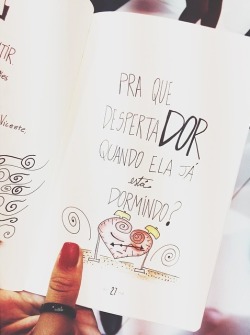 TIR
Vicente
PRA QUE
DESPERTADOR
QUANDO ELA JÁ
está
DORMINDO?
27